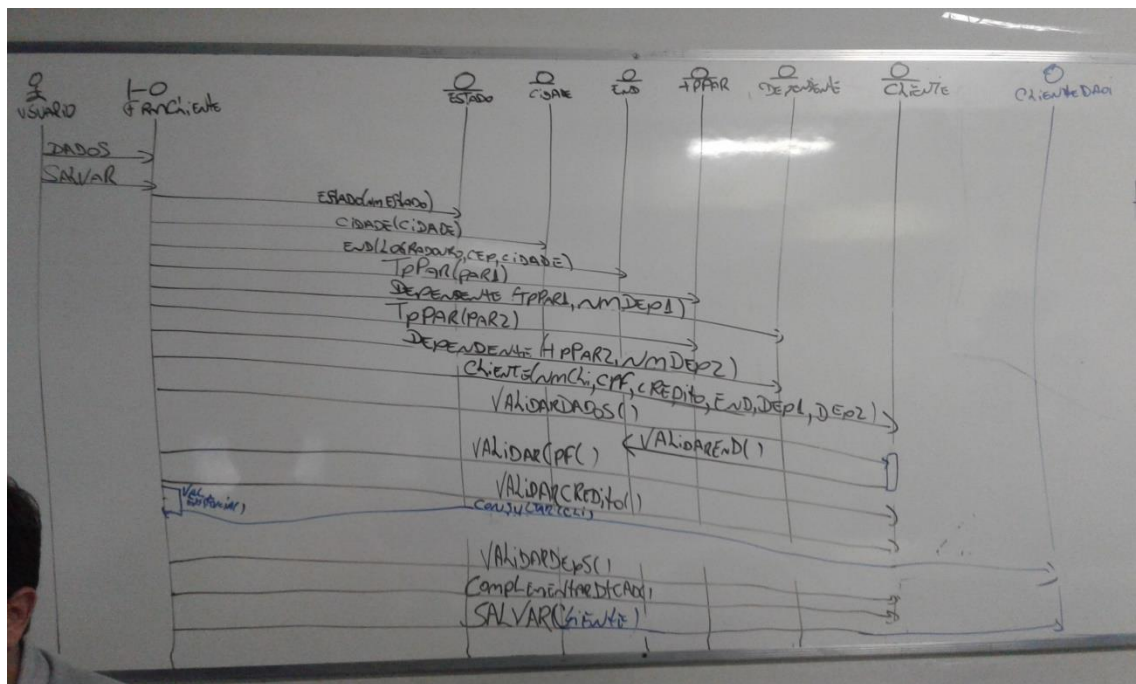 USUÁRIO
FRMCLiENtE
ESTADO
CiDADE
END
tPPAR
DEPENDENtE
CLiENTE
CLiENtEDAO
DADOS
SALVAR
EStADO(nmEStADO)
CiDADE(CiDADE)
END(LOGRADOURO,CEP,CiDADE)
TpPAR(PAR1)
DEPENDENtE(tPPAR1,NMDEP1)
TpPAR(PAR2)
DEPENDENtE(tpPAR2,NmDEP2)
CLiENTE(NmCLi,CPF,CREDito,END,DEP1,DEP2)
VALiDARDADOS()
VALiDAREND()
VALiDARCPF()
VALiDARCREDito()
VAL
CONSULTAR(CLi)
VALiDARDEPS()
SALVAR(CLiENtE)